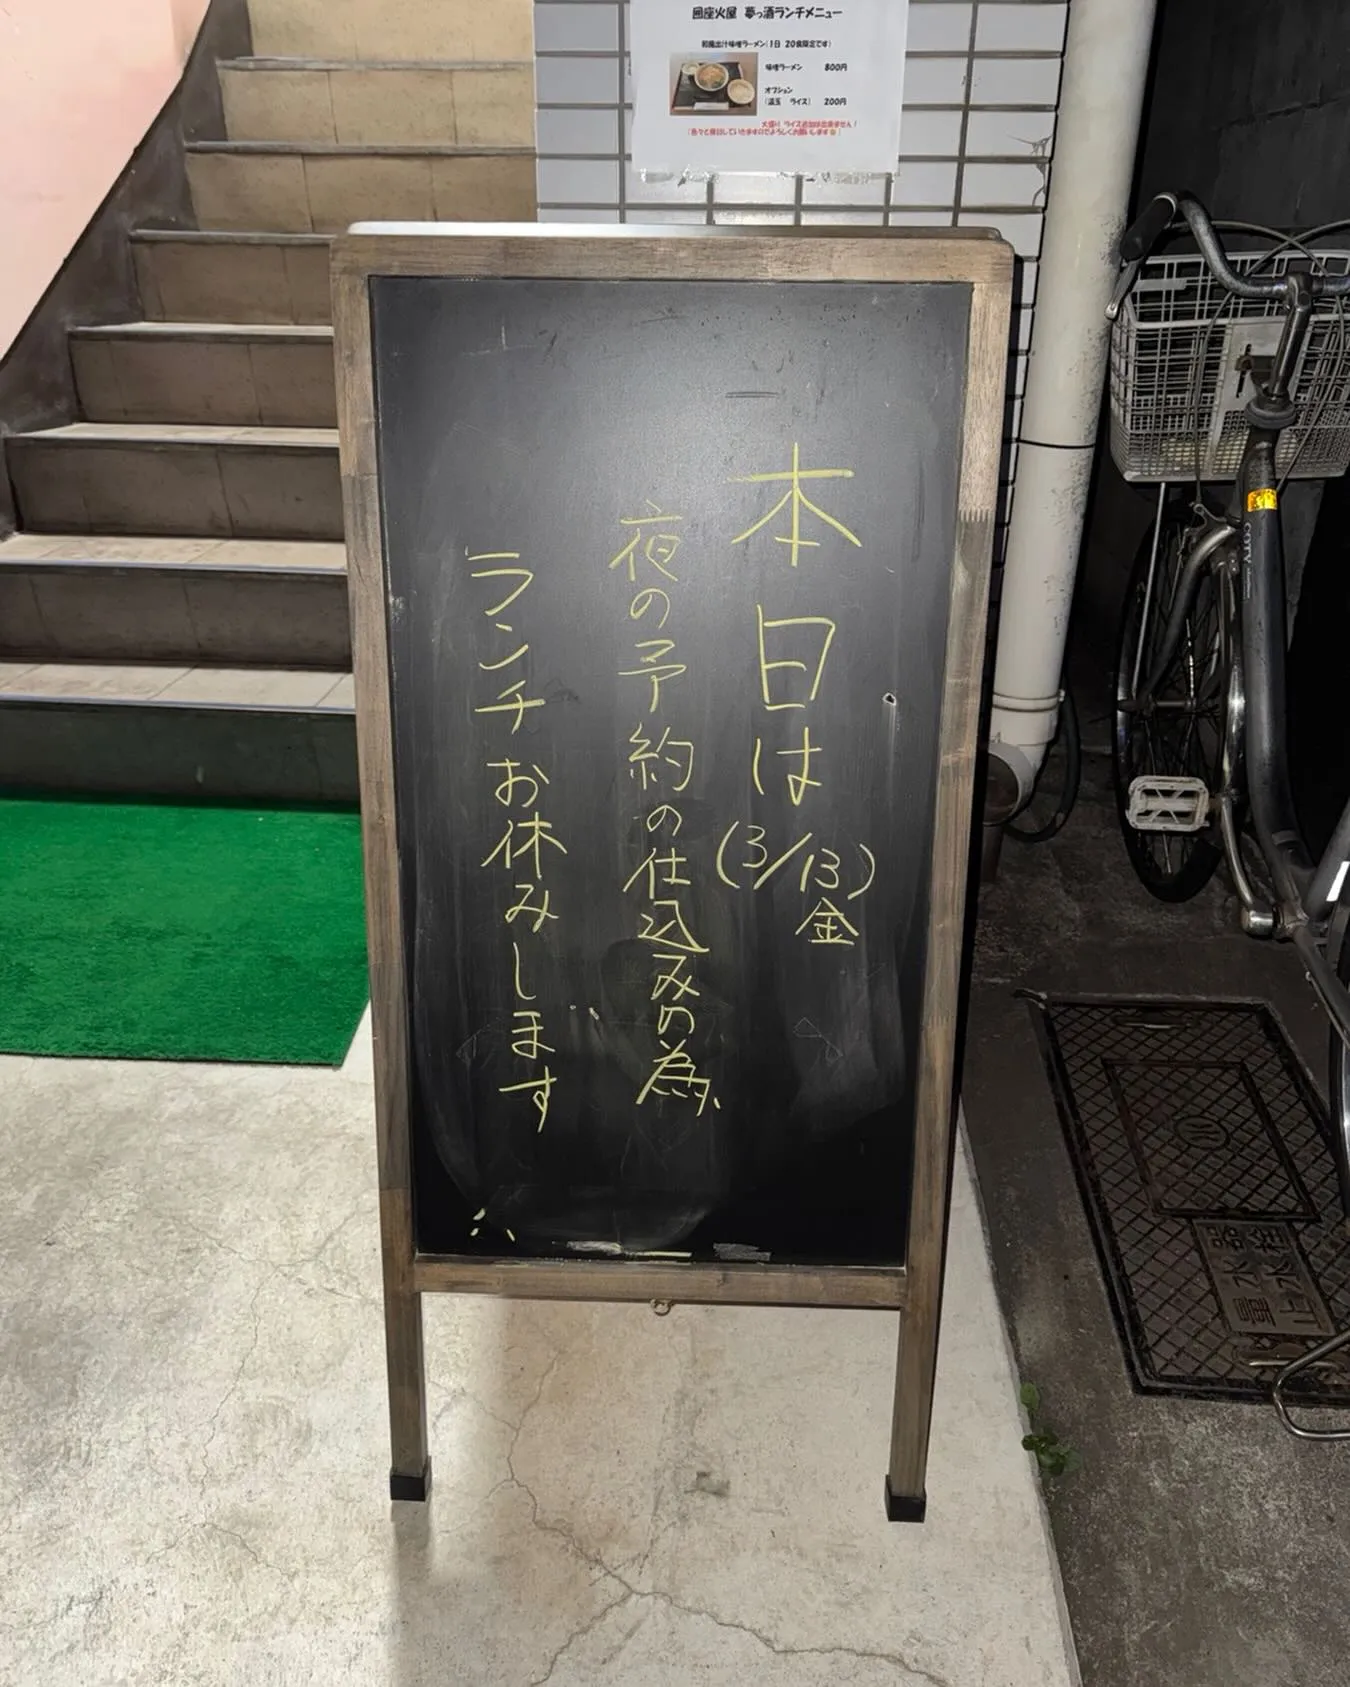 囲座火屋 夢っ酒ランチメニュー
和風出汁味噌ラーメン(1日 20食限定です)
味噌ラーメン 800円
オプション
(温玉 ライス) 200円
大盛り ライス追加は出来ません!
本日は
(3/13)
金
夜の予約の仕込みの為、
ランチお休みします
COTY
量水器
止水栓